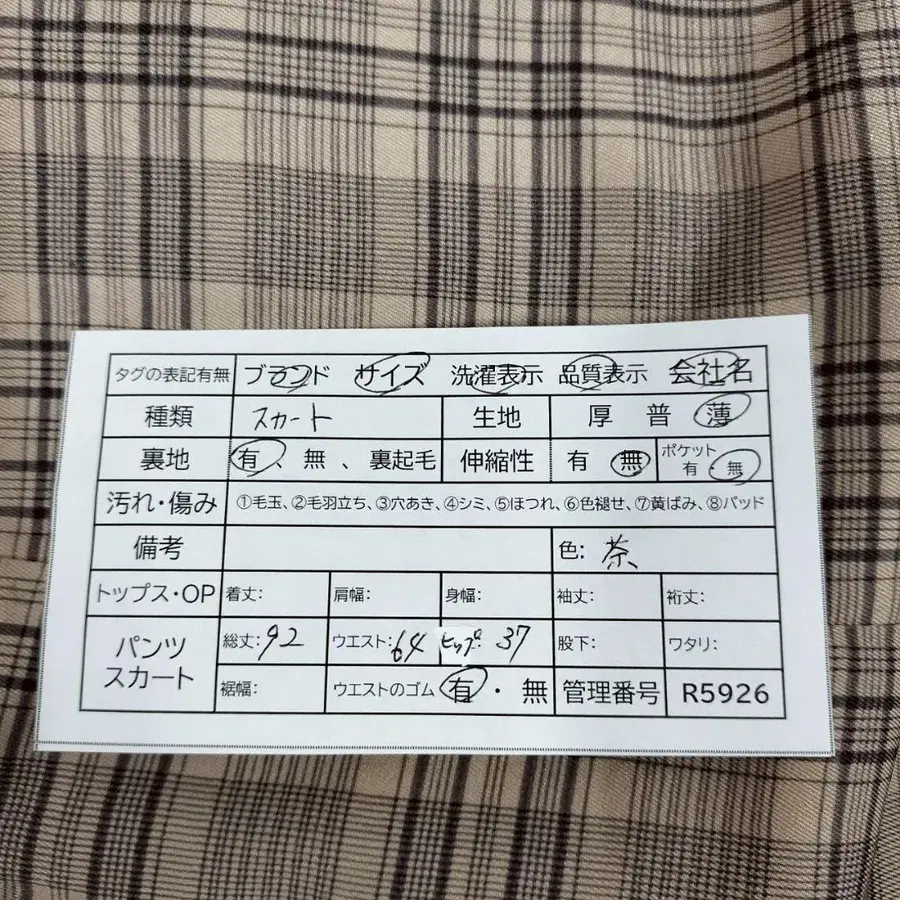 タグの表記有無 ブランド サイズ 洗濯表示 品質表示 会社名
種類 スカート 生地 厚 普 薄
裏地 有、無、裏起毛 伸縮性 有 無 ポケット 有・無
汚れ・傷み ①毛玉、②毛羽立ち、③穴あき、④シミ、⑤ほつれ、⑥色褪せ、⑦黄ばみ、⑧パッド
備考 色: 茶
トップス・OP 着丈: 肩幅: 身幅: 袖丈: 裄丈:
パンツ スカート 総丈:92 ウエスト:64 ヒップ:37 股下: ワタリ:
裾幅: ウエストのゴム 有・無 管理番号 R5926